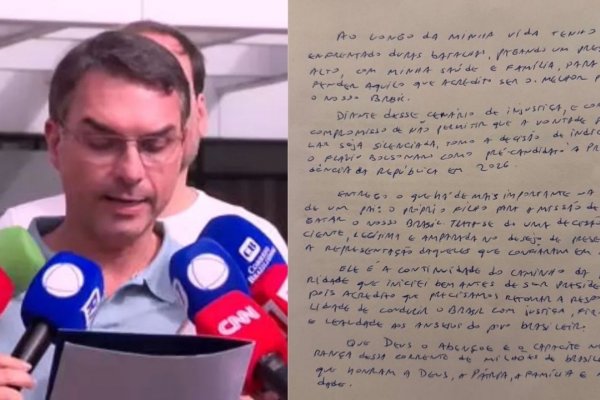 CB
CNN
AO LONGO DA MINHA VIDA TENHO
ENFRENTADO DURAS BATALHAS, PAGANDO UM PRE
ALTO, COM MINHA SAÚDE E FAMÍLIA, PARA
FENDER AQUILO QUE ACREDITO SER O MELHOR P
O NOSSO BRASIL.
DIANTE DESSE CENÁRIO DE INJUSTIÇA, E COM
COMPROMISSO DE NÃO PERMITIR QUE A VONTADE P
LAR SEJA SILENCIADA, TOMO A DECISÃO DE INDIC
O FLÁVIO BOLSONARO COMO PRÉ-CANDIDATO À PR
DÊNCIA DA REPÚBLICA EM 2026.
ENTREGO O QUE HÁ DE MAIS IMPORTANTE NA
DE UM PAI: O PRÓPRIO FILHO PARA A MISSÃO DE
GATAR O NOSSO BRASIL. TRATA-SE DE UMA DECISÃO
CIENTE, LEGÍTIMA E AMPARADA NO DESEJO DE PRESE
A REPRESENTAÇÃO DAQUELES QUE CONFIARAM EM
ELE É A CONTINUIDADE DO CAMINHO DA P
RIDADE QUE INICIEI BEM ANTES DE SER PRESIDE
POIS ACREDITO QUE PRECISAMOS RETOMAR A RESPO
LIDADE DE CONDUZIR O BRASIL COM JUSTIÇA, FIR
E LEALDADE AOS ANSEIOS DO POVO BRASILEIR.
QUE DEUS O ABENÇOE E O CAPACITE NA
RANÇA DESSA CORRENTE DE MILHÕES DE BRASILE
QUE HONRAM A DEUS, A PÁTRIA, A FAMÍLIA E A
DADE.